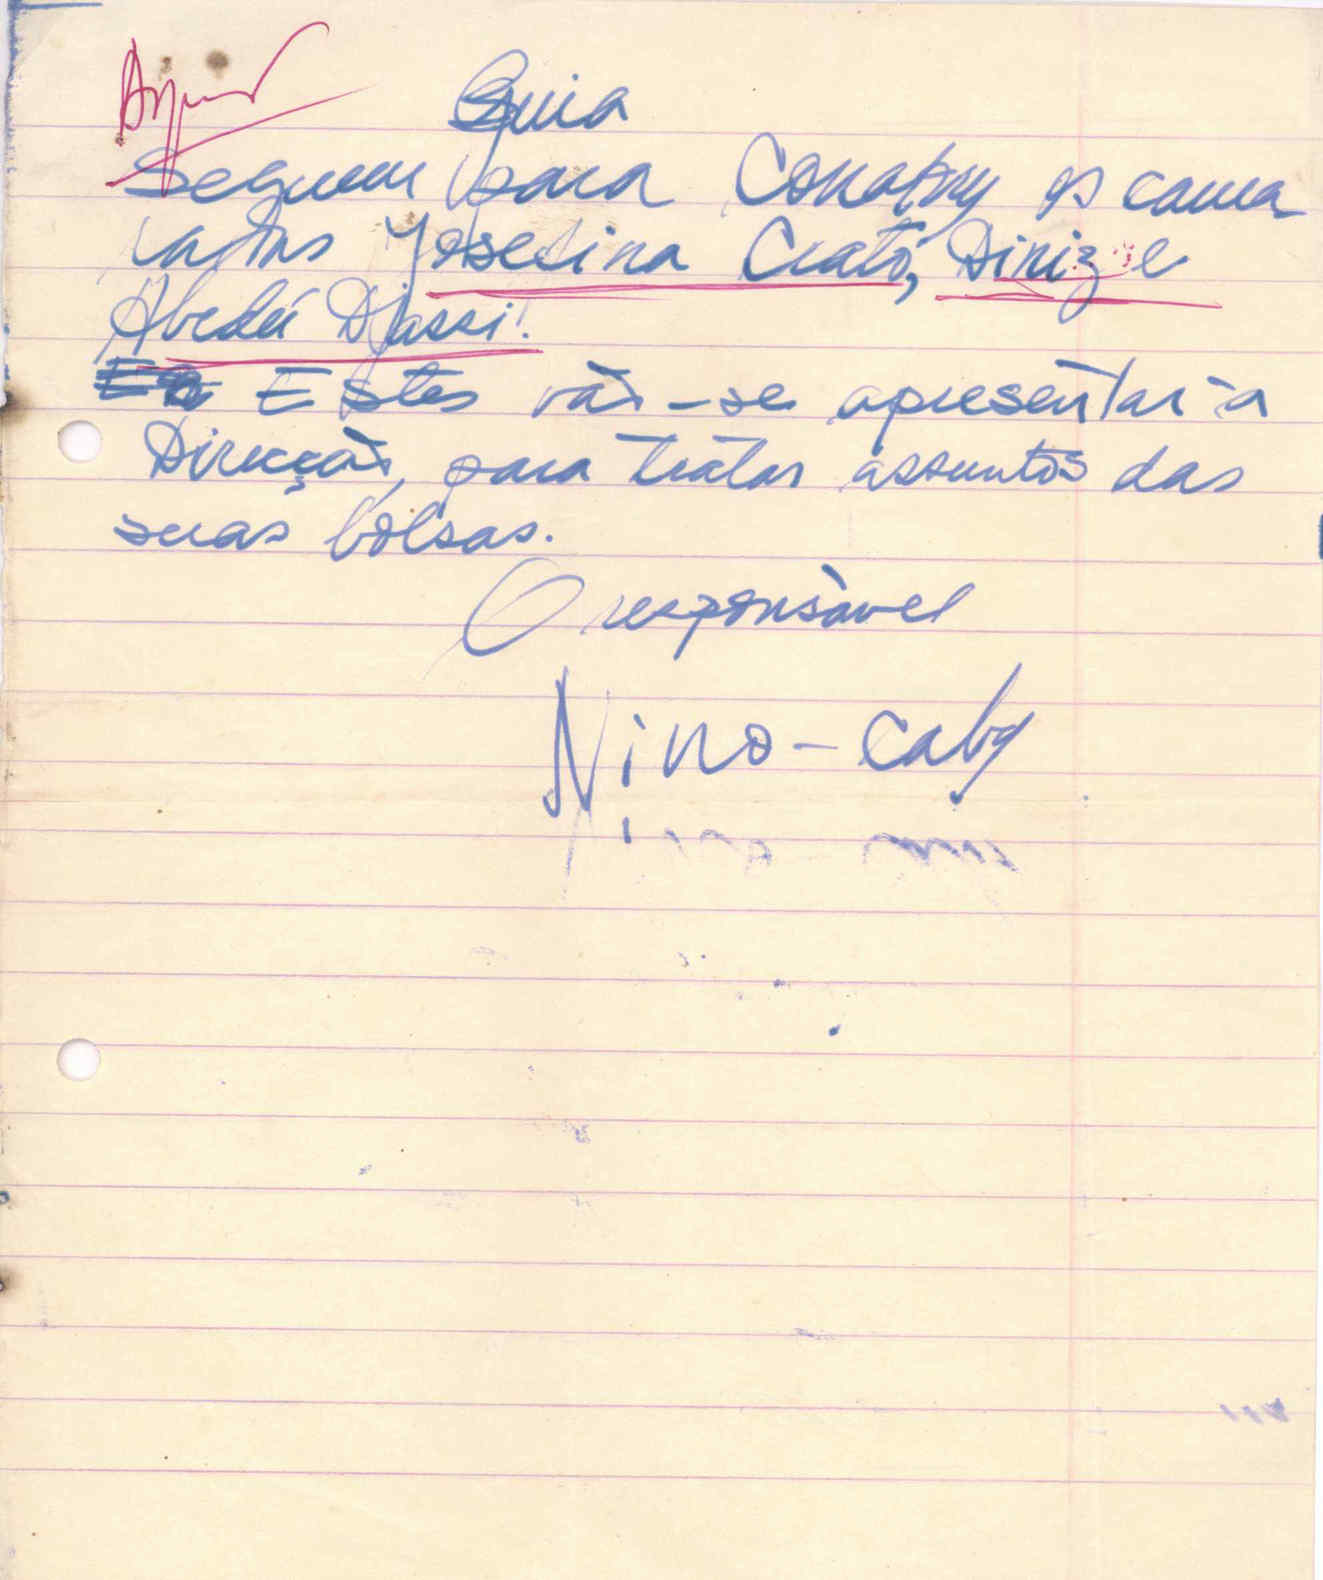 Guia
Seguem para Conakry os cama
radas Josefina Crató, Diniz e
Abedú Djassi.
Estes vão-se apresentar à
Direcção, para tratar assuntos das
suas bolsas.
O responsável
Nino-Caby